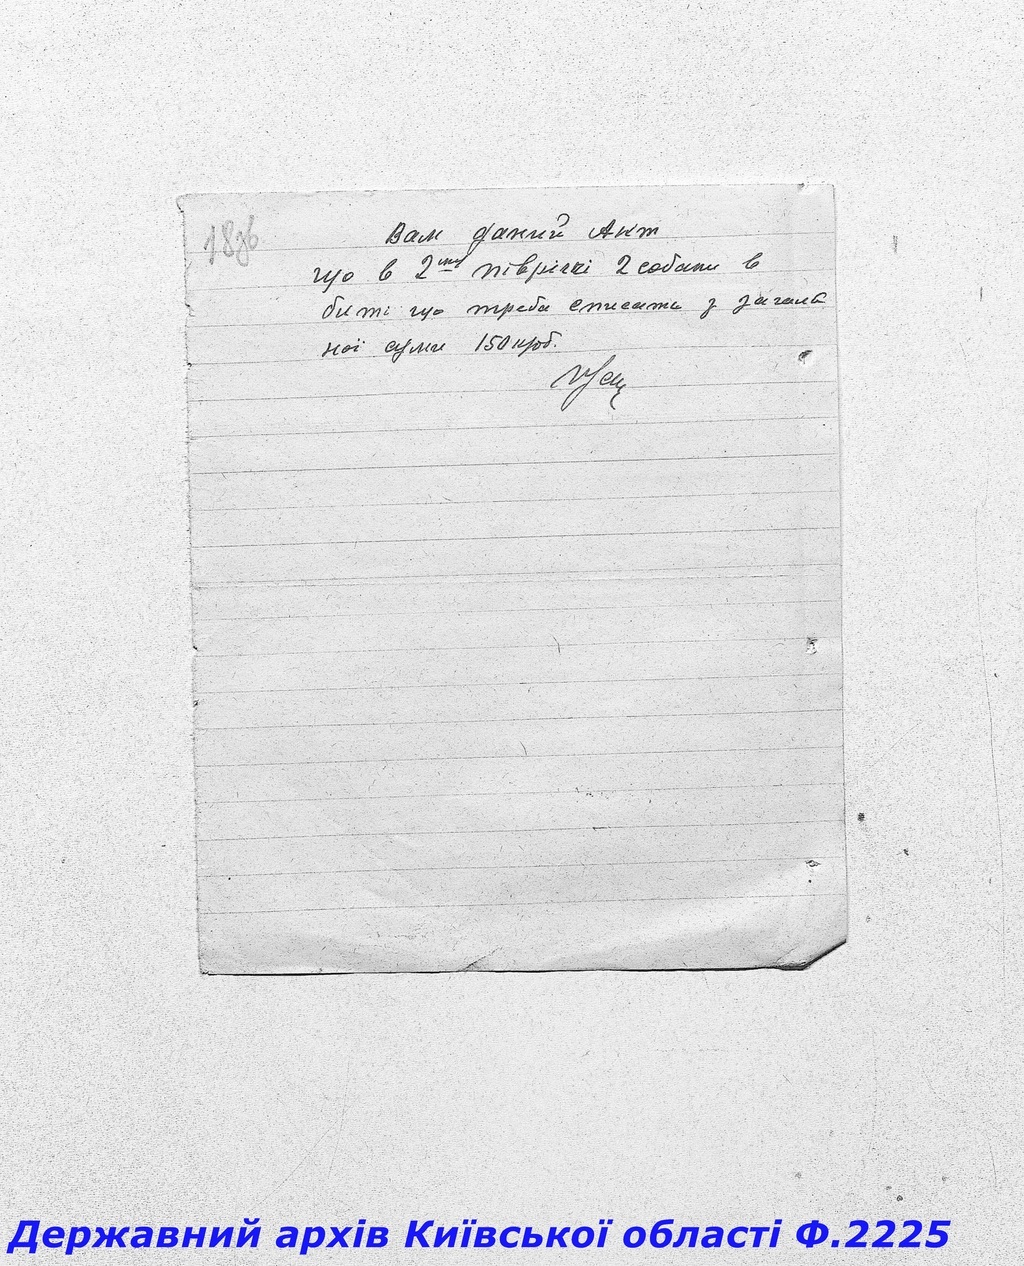 18зв
Вам даний Акт
що в 2му піврічкі 2 собаки в
биті що треба списати з загаль
ної суми 150 крб.
Державний архів Київської області Ф.2225